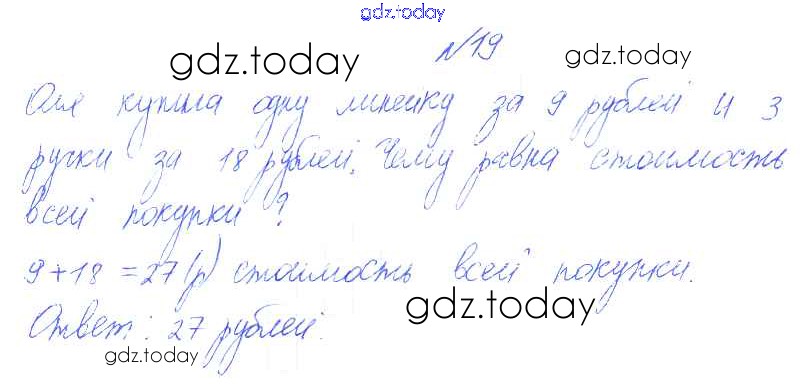 gdz.today
№19
gdz.today
gdz.today
Оля купила одну линейку за 9 рублей и 3
ручки за 18 рублей. Чему равна стоимость
всей покупки?
9+18=27(р) стоимость всей покупки.
gdz.today
Ответ: 27 рублей.
gdz.today